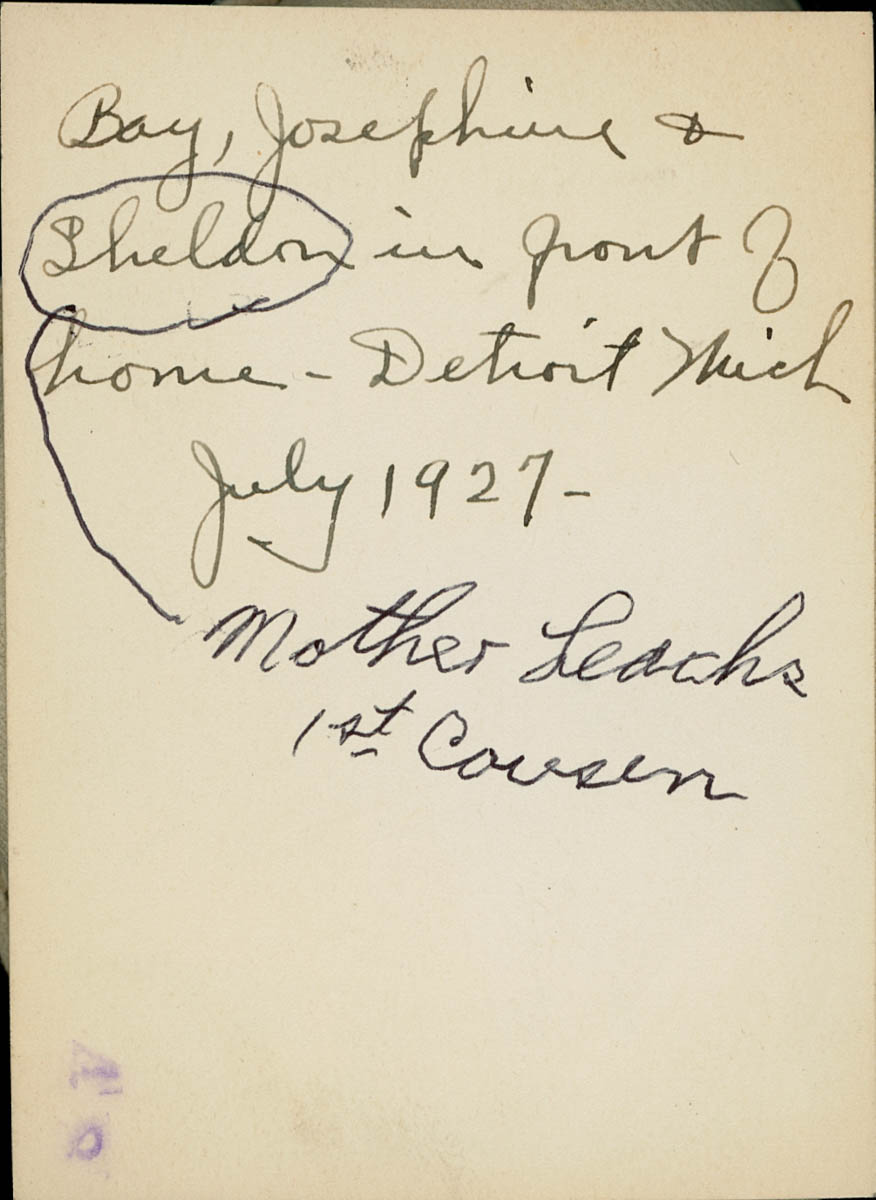 Bay, Josephine &
Sheldon in front of
home - Detroit Mich
July 1927 -
Mother Leachs
1st Cousen